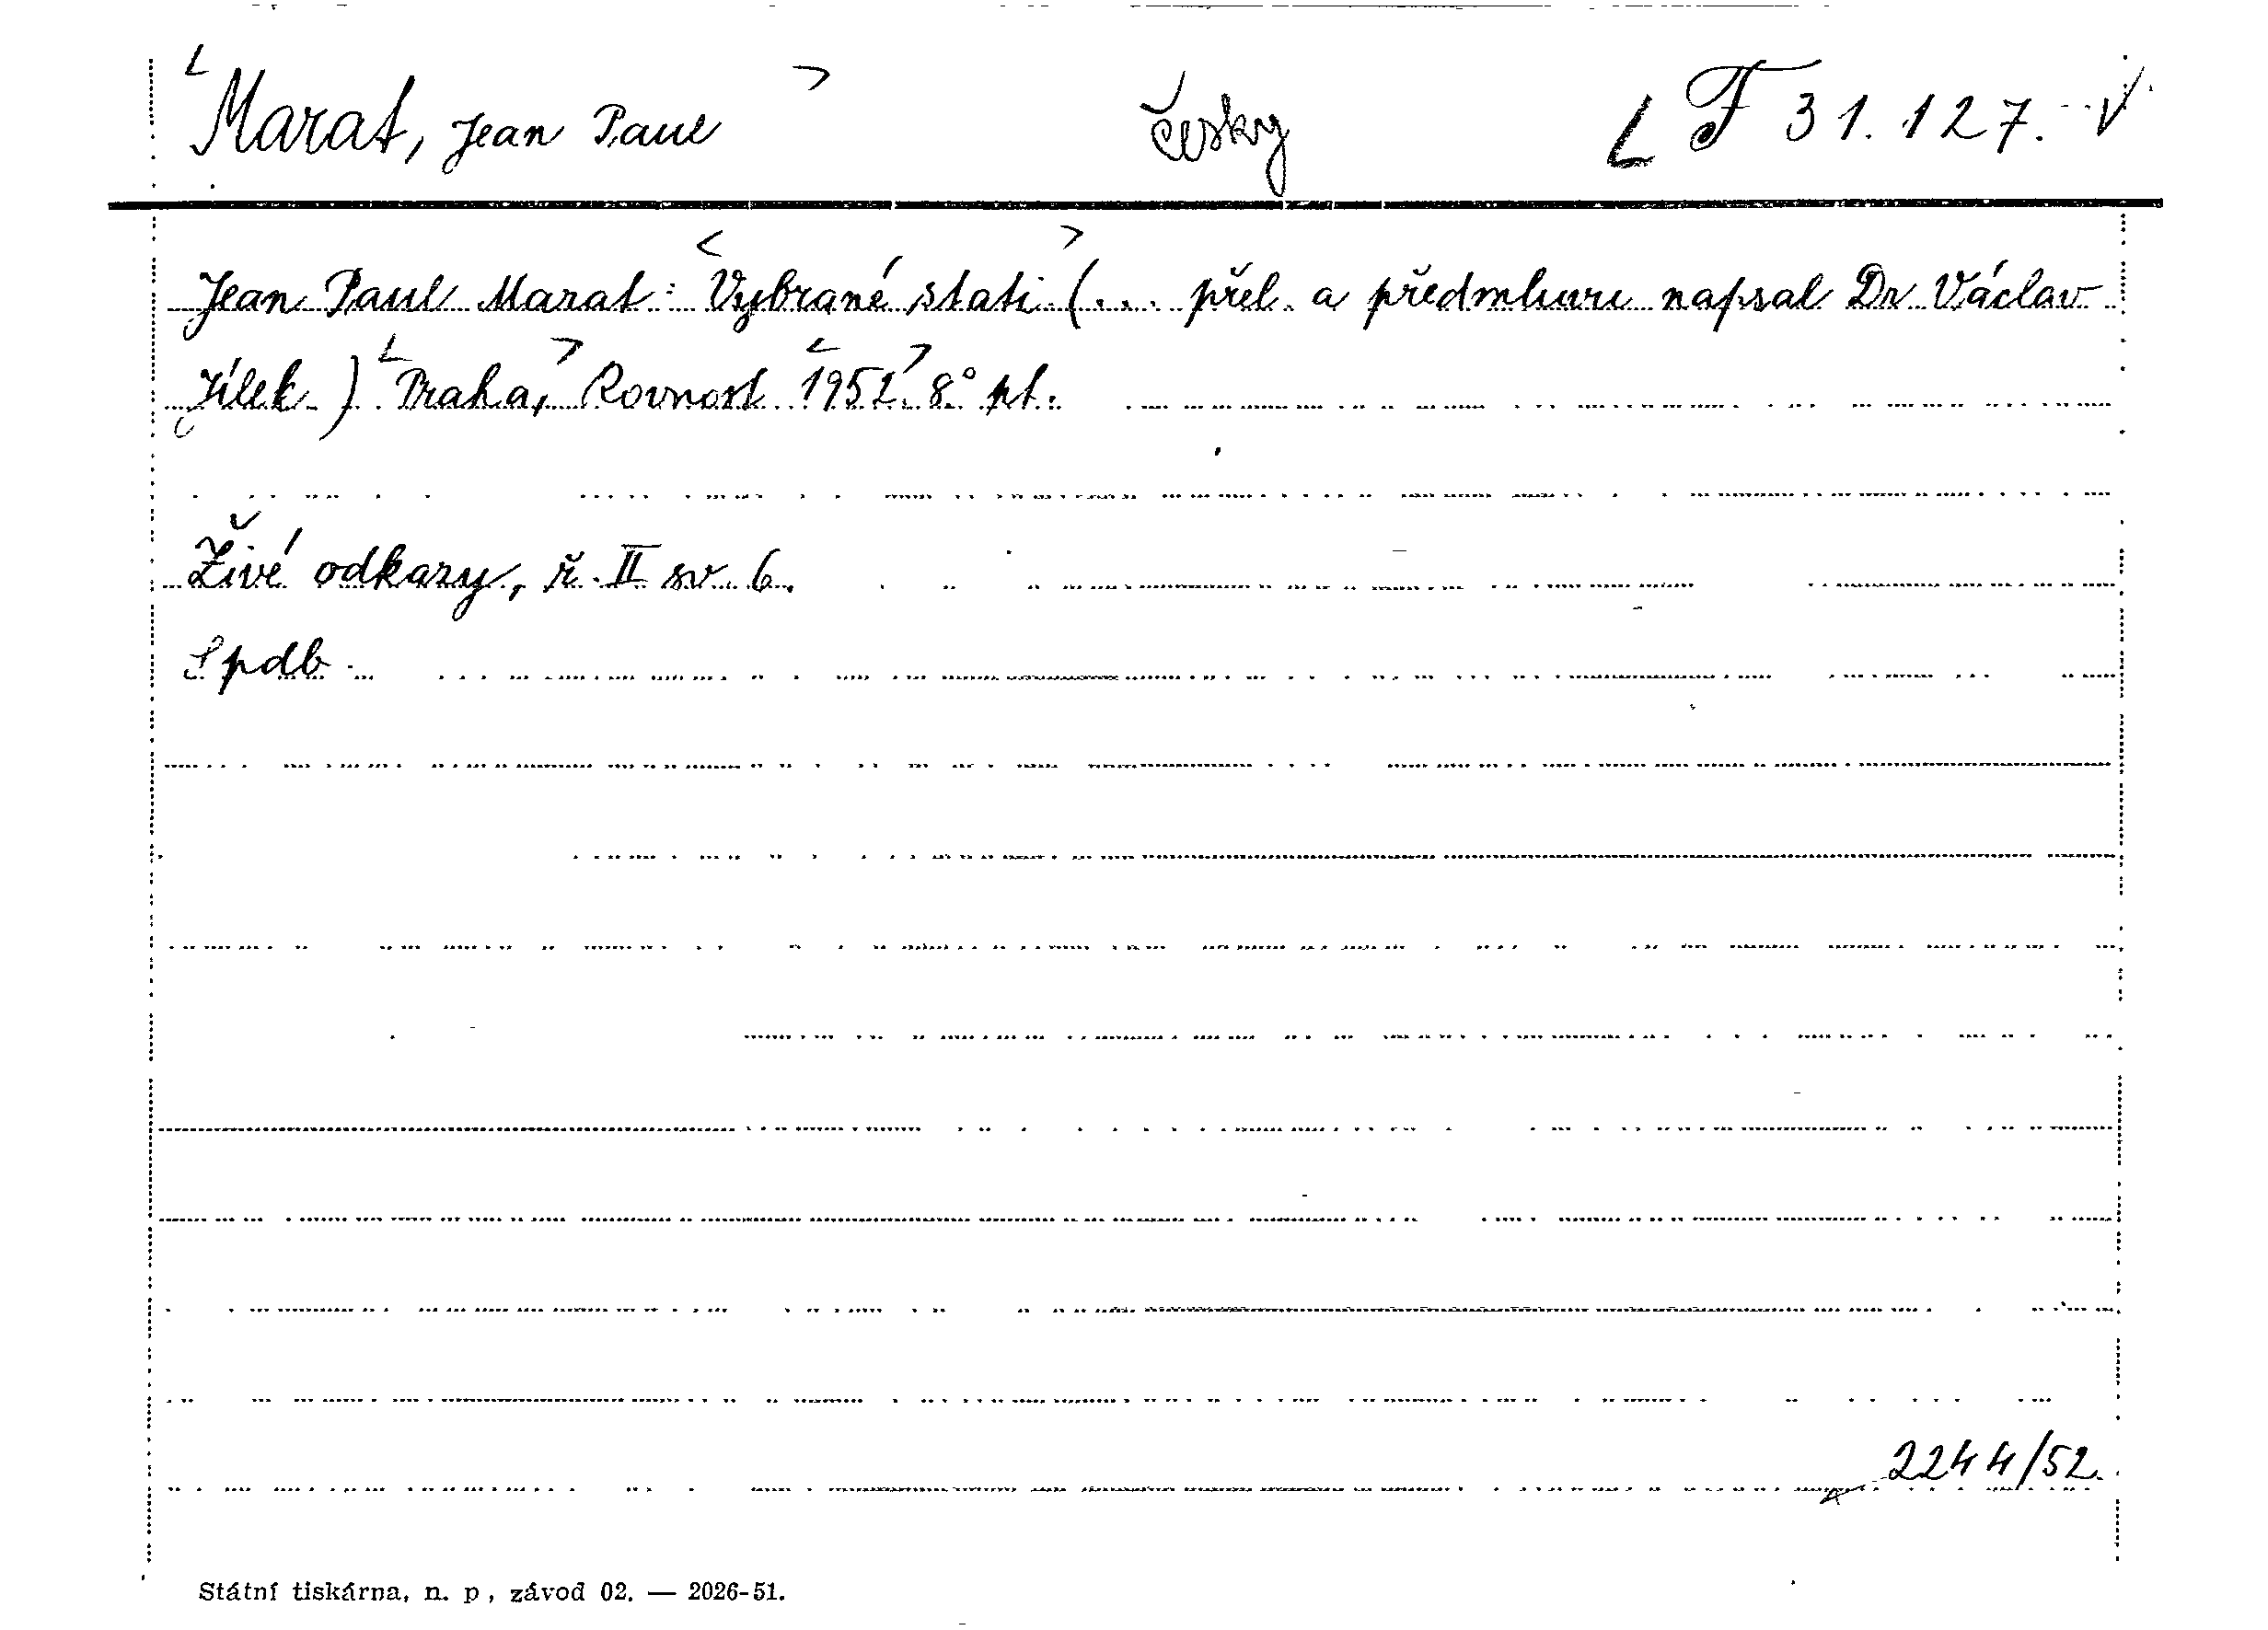 Marat, Jean Paul česky F 31.127.
Jean Paul Marat: Vybrané stati (... přel. a předmluvu napsal Dr Václav
Jílek.) Praha, Rovnost 1952. 8° pt.
Živé odkazy, ř. II sv. 6.
Spdb.
2244/52.
Státní tiskárna, n. p., závod 02. — 2026-51.